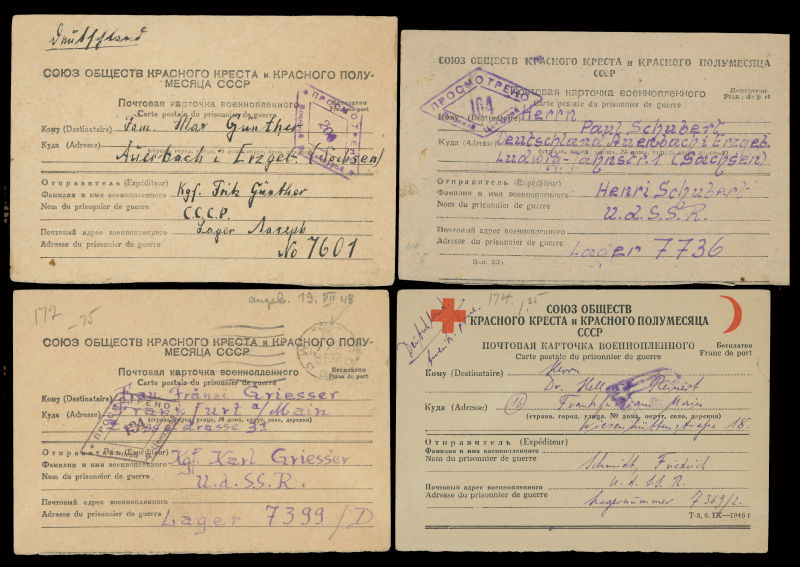 Deutschland
СОЮЗ ОБЩЕСТВ КРАСНОГО КРЕСТА и КРАСНОГО ПОЛУ-
МЕСЯЦА СССР
Почтовая карточка военнопленного
Бесплатно
Carte postale du prisonnier de guerre
Franc de port
ПРОСМОТРЕНО
Кому (Destinataire) Fam. Max Günther
Куда (Адрес)
Auerbach i Erzgeb. (Sachsen)
Отправитель (Expéditeur)
Фамилия и имя военнопленного Kgf. Fritz Günther
Nom du prisonnier de guerre
C.C.C.P.
Почтовый адрес военнопленного Lager
Adresse du prisonnier de guerre No 7601
СОЮЗ ОБЩЕСТВ КРАСНОГО КРЕСТА и КРАСНОГО ПОЛУМЕСЯЦА
СССР
ПРОСМОТРЕНО
164
Почтовая карточка военнопленного
Бесплатно
Carte postale du prisonnier de guerre
Franc de port
Кому (Destinataire) Herrn
Paul Schubert
Куда (Adresse) Deutschland Auerbach i Erzgeb.
Ludwig-Jahnstr. 1 (Sachsen)
Отправитель (Expéditeur)
Фамилия и имя военнопленного Henri Schubert
Nom du prisonnier de guerre U.d.S.S.R.
Почтовый адрес военнопленного
Adresse du prisonnier de guerre Lager 7736
172
-25
angek. 19. VII 48
СОЮЗ ОБЩЕСТВ КРАСНОГО КРЕСТА и КРАСНОГО ПОЛУ-
МЕСЯЦА СССР
Почтовая карточка военнопленного
Бесплатно
Carte postale du prisonnier de guerre
Franc de port
ПРОСМОТРЕНО
Кому (Destinataire) Frau Fränzi Griesser
Куда (Adresse) Frankfurt a/Main
(страна, город, улица, № дома, округ, село, деревня)
Отправитель (Expéditeur)
Фамилия и имя военнопленного Kgf. Karl Griesser
Nom du prisonnier de guerre U.d.SS.R.
Почтовый адрес военнопленного
Adresse du prisonnier de guerre Lager 7399/D
174.
1.25
СОЮЗ ОБЩЕСТВ
КРАСНОГО КРЕСТА и КРАСНОГО ПОЛУМЕСЯЦА
СССР
ПОЧТОВАЯ КАРТОЧКА ВОЕННОПЛЕННОГО
Бесплатно
Carte postale du prisonnier de guerre
Franc de port
Кому (Destinataire) Herrn
Dr.
Куда (Adresse) (16) Frankfurt am Main
(страна, город, улица, № дома, округ, село, деревня)
Wiesenhüttenstraße 18.
Отправитель (Expéditeur)
Фамилия и имя военнопленного
Nom du prisonnier de guerre Schmidt, Friedrich
U. d. S. S. R.
Почтовый адрес военнопленного
Adresse du prisonnier de guerre Lagernummer 7369/2.
Т-3, 6. IX—1946 г